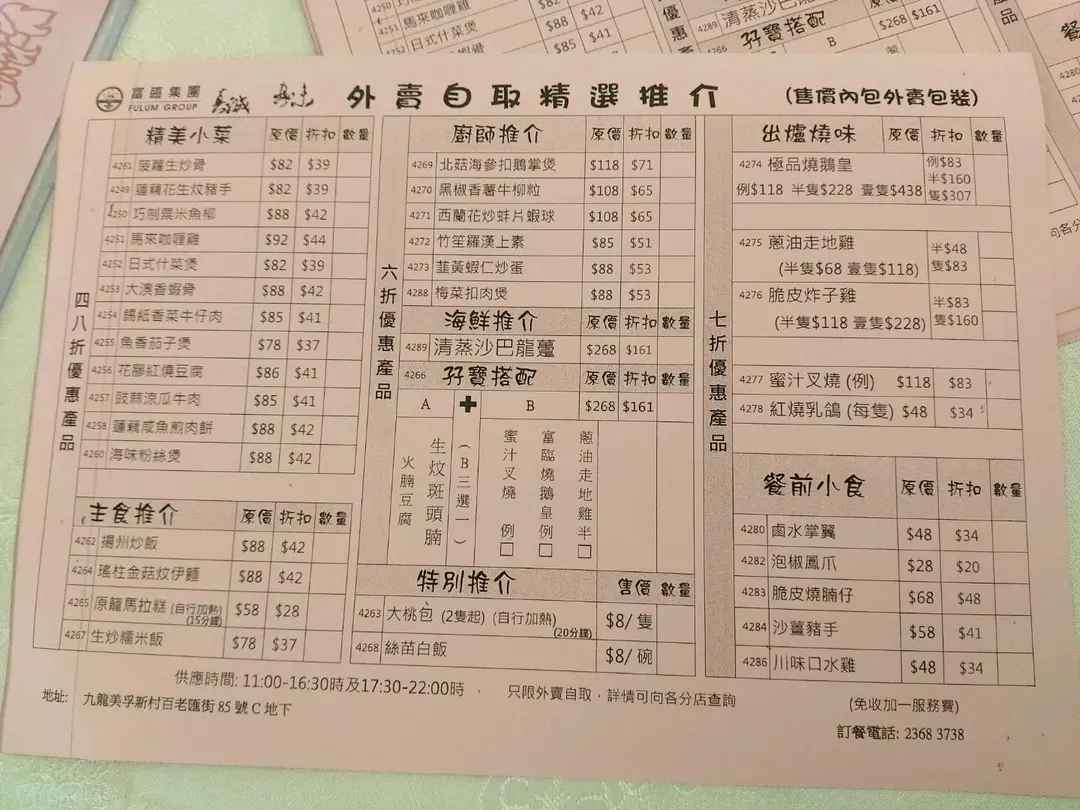 富臨集團
FULUM GROUP
外賣自取精選推介
(售價內包外賣包裝)
四八折優惠產品
精美小菜 原價 折扣 數量
4261 菠蘿生炒骨 $82 $39
4249 蓮藕花生炆豬手 $82 $39
4250 巧制粟米魚柳 $88 $42
4251 馬來咖喱雞 $92 $44
4252 日式什菜煲 $82 $39
4253 大澳香蝦骨 $88 $42
4254 錫紙香菜牛仔肉 $85 $41
4255 魚香茄子煲 $78 $37
4256 花膠紅燒豆腐 $86 $41
4257 豉蒜涼瓜牛肉 $85 $41
4258 蓮藕咸魚煎肉餅 $88 $42
4260 海味粉絲煲 $88 $42
主食推介 原價 折扣 數量
4262 揚州炒飯 $88 $42
4264 瑤柱金菇炆伊麵 $88 $42
4265 原籠馬拉糕 (自行加熱) $58 $28
(15分鐘)
4267 生炒糯米飯 $78 $37
六折優惠產品
廚師推介 原價 折扣 數量
4269 北菇海參扣鵝掌煲 $118 $71
4270 黑椒香薯牛柳粒 $108 $65
4271 西蘭花炒蚌片蝦球 $108 $65
4272 竹笙羅漢上素 $85 $51
4273 韮黃蝦仁炒蛋 $88 $53
4288 梅菜扣肉煲 $88 $53
海鮮推介 原價 折扣 數量
4289 清蒸沙巴龍躉 $268 $161
4266 孖寶搭配 原價 折扣 數量
A ✚ B $268 $161
火腩豆腐
生炆斑頭腩
(B三選一)
蜜汁叉燒 例 □
富臨燒鵝皇 例 □
蔥油走地雞 半 □
特別推介 售價 數量
4263 大桃包 (2隻起) (自行加熱) $8/隻
(20分鐘)
4268 絲苗白飯 $8/碗
七折優惠產品
出爐燒味 原價 折扣 數量
4274 極品燒鵝皇 例$83
半$160
例$118 半隻$228 壹隻$438 隻$307
4275 蔥油走地雞 半$48
(半隻$68 壹隻$118) 隻$83
4276 脆皮炸子雞 半$83
(半隻$118 壹隻$228) 隻$160
4277 蜜汁叉燒 (例) $118 $83
4278 紅燒乳鴿 (每隻) $48 $34
餐前小食 原價 折扣 數量
4280 鹵水掌翼 $48 $34
4282 泡椒鳳爪 $28 $20
4283 脆皮燒腩仔 $68 $48
4284 沙薑豬手 $58 $41
4286 川味口水雞 $48 $34
供應時間: 11:00-16:30時及17:30-22:00時 , 只限外賣自取，詳情可向各分店查詢 (免收加一服務費)
地址: 九龍美孚新村百老匯街 85 號 C 地下
訂餐電話: 2368 3738